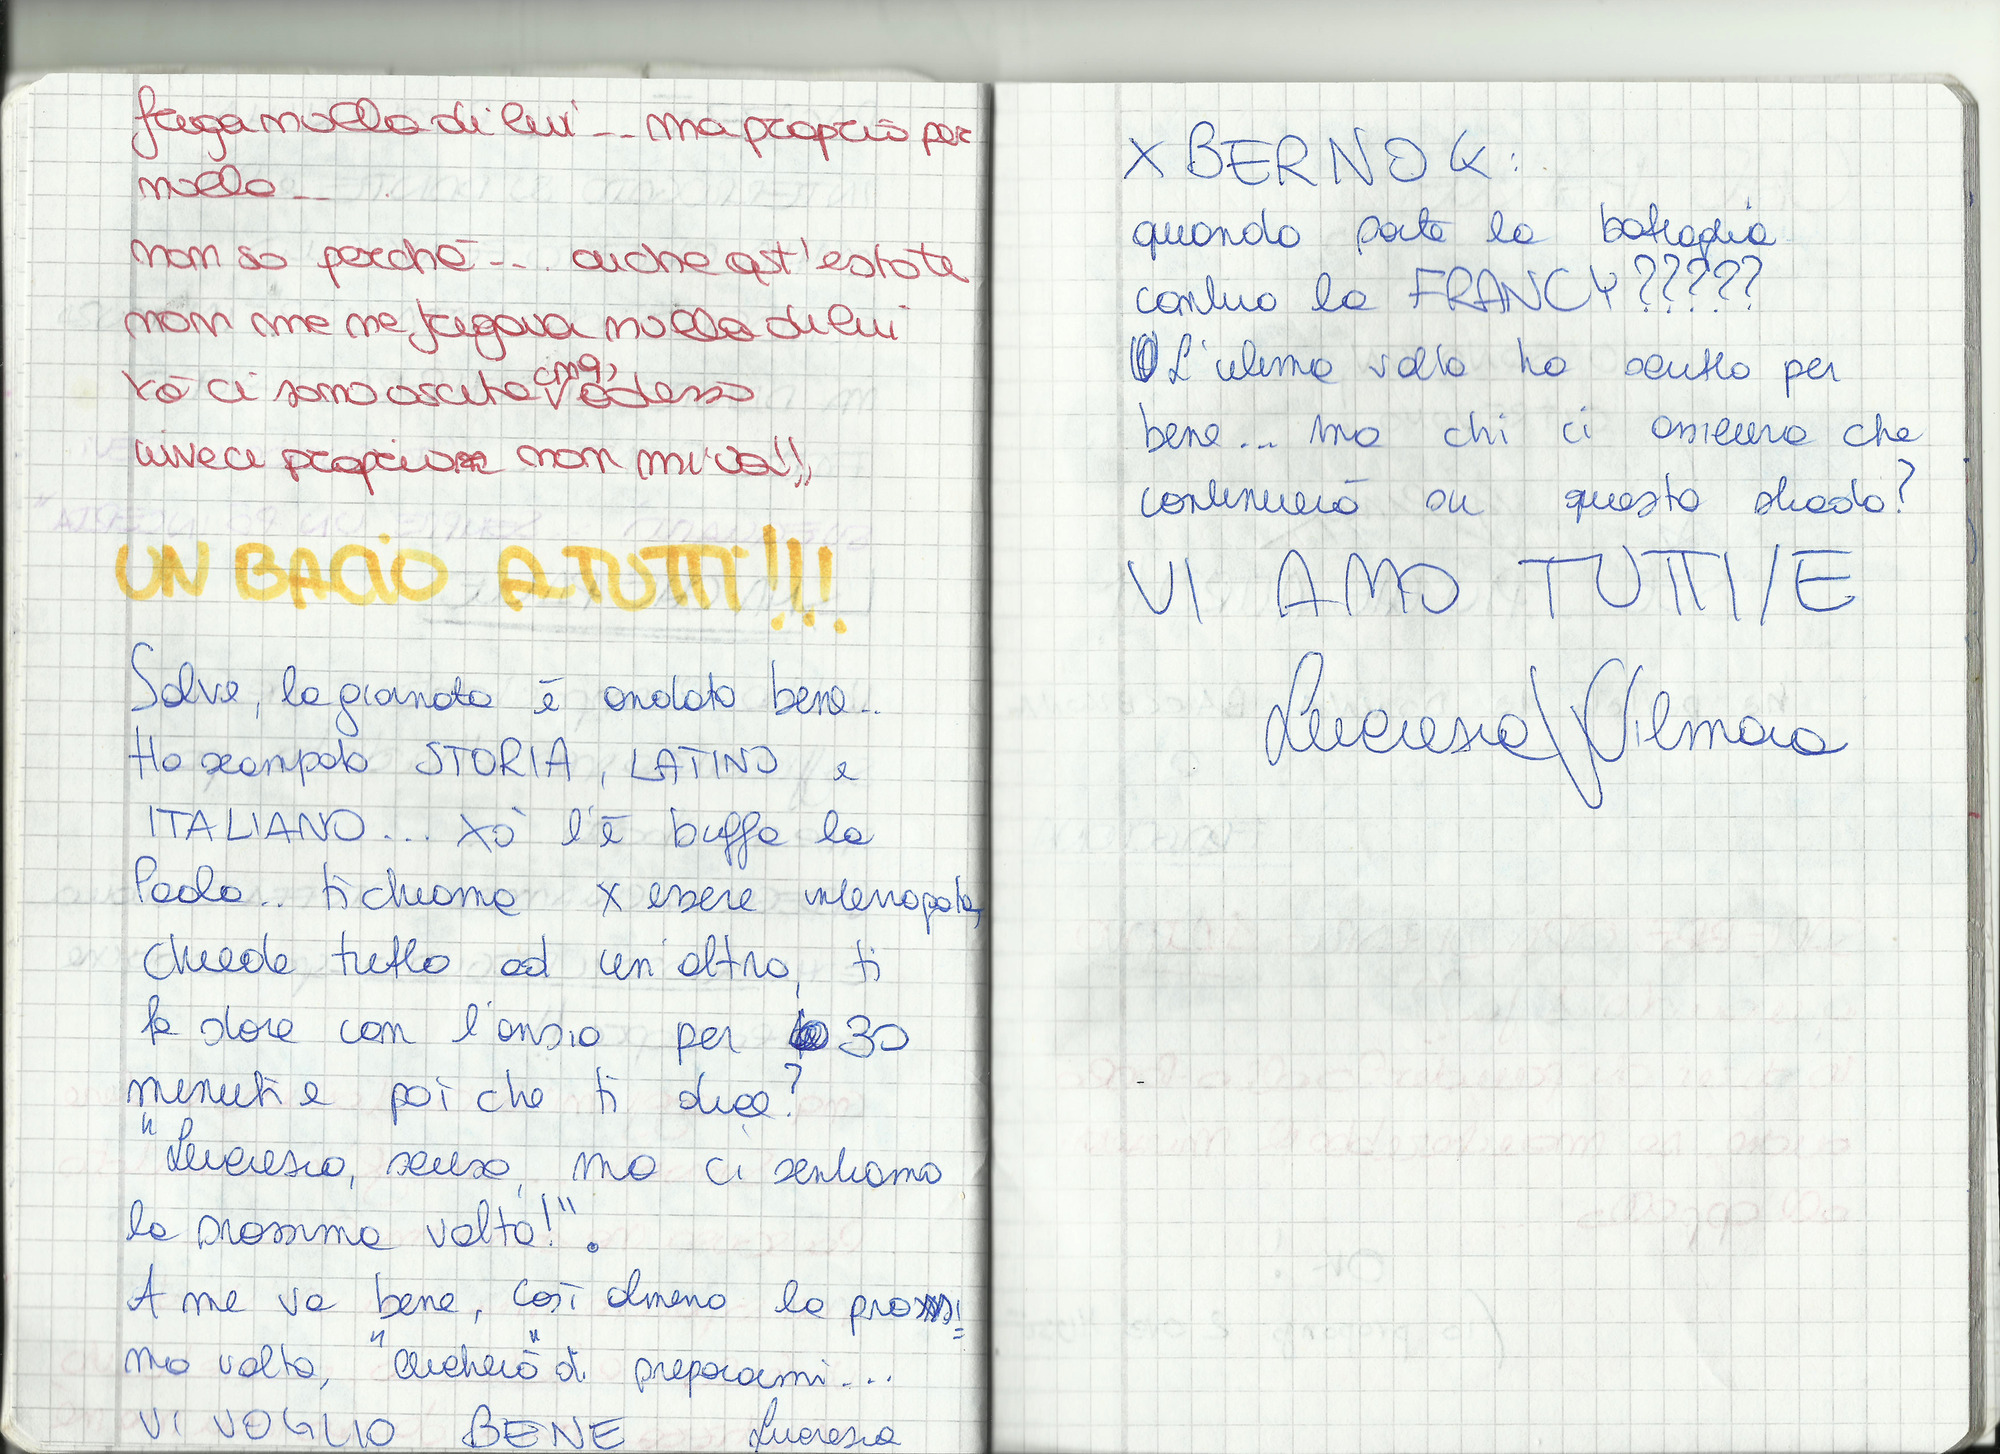 frega nulla di lui... ma proprio per
nulla...
non so perchè.... anche qst'estate
non me ne fregava nulla di lui
xò ci sono uscita cmq, adesso
invece proprio non mi va!!,
UN BACIO A TUTTI!!!
Salve, la giornata è andata bene..
Ho scampato STORIA, LATINO e
ITALIANO... xò l'è buffa la
Paola.. ti chiama x essere interrogata,
chiede tutto ad un'altra, ti
fa stare con l'ansia per 30
minuti e poi che ti dice?
"Lucrezia, scusa, ma ci sentiamo
la prossima volta!".
A me va bene, così almeno la prossi=
ma volta, "cercherò" di prepararmi...
VI VOGLIO BENE Lucrezia
X BERNOCK:
quando parte la battaglia
contro la FRANCY?????
L'ultima volta ha scritto per
bene... ma chi ci assicura che
continuerà su questa strada?
VI AMO TUTTI/E
Lucrezia/Vilmara